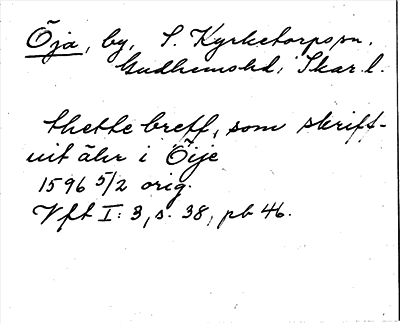 Öja, by, S. Kyrketorps sn,
Gudhems hd, Skar. l.
thette breff, som skrift-
uit ähr i Öije
1596 5/2 orig.
Vft I: 3, s. 38, pb 46.